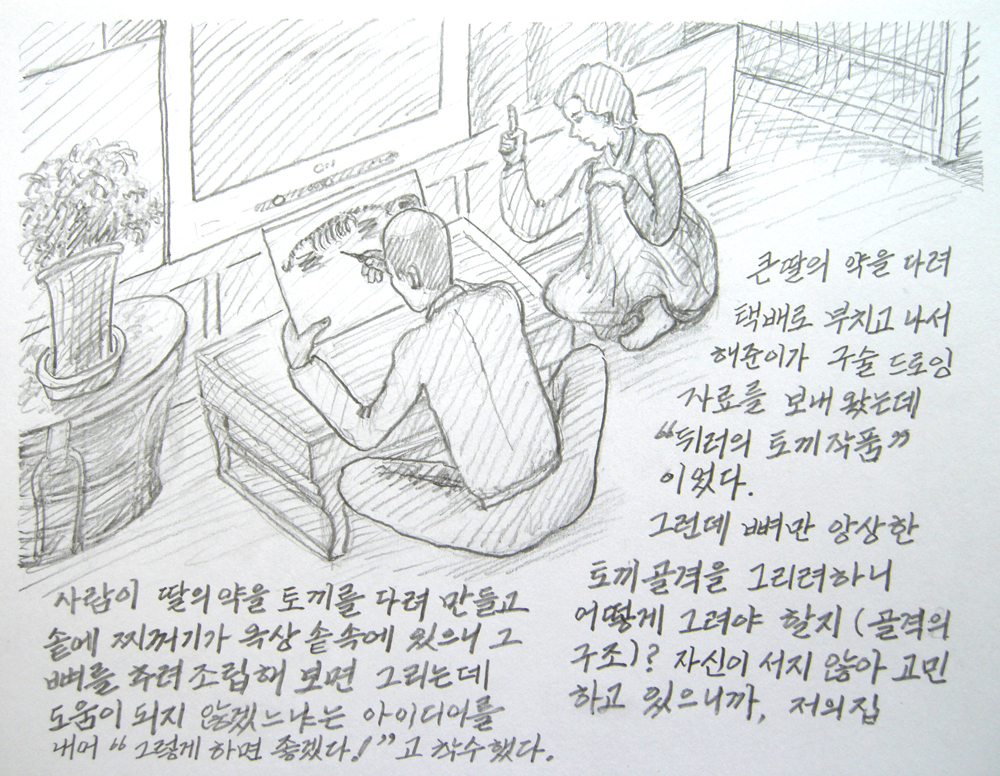 큰딸의 약을 다려
택배로 부치고 나서
해준이가 구술 드로잉
자료를 보내 왔는데
“뒤러의 토끼작품”
이었다.
그런데 뼈만 앙상한
토끼골격을 그리려하니
어떻게 그려야 할지 (골격의
구조)? 자신이 서지 않아 고민
하고 있으니까, 저의집
사람이 딸의 약을 토끼를 다려 만들고
솥에 찌꺼기가 옥상 솥속에 있으니 그
뼈를 추려 조립해 보면 그리는데
도움이 되지 않겠느냐는 아이디어를
내며 “그렇게 하면 좋겠다!”고 착수했다.